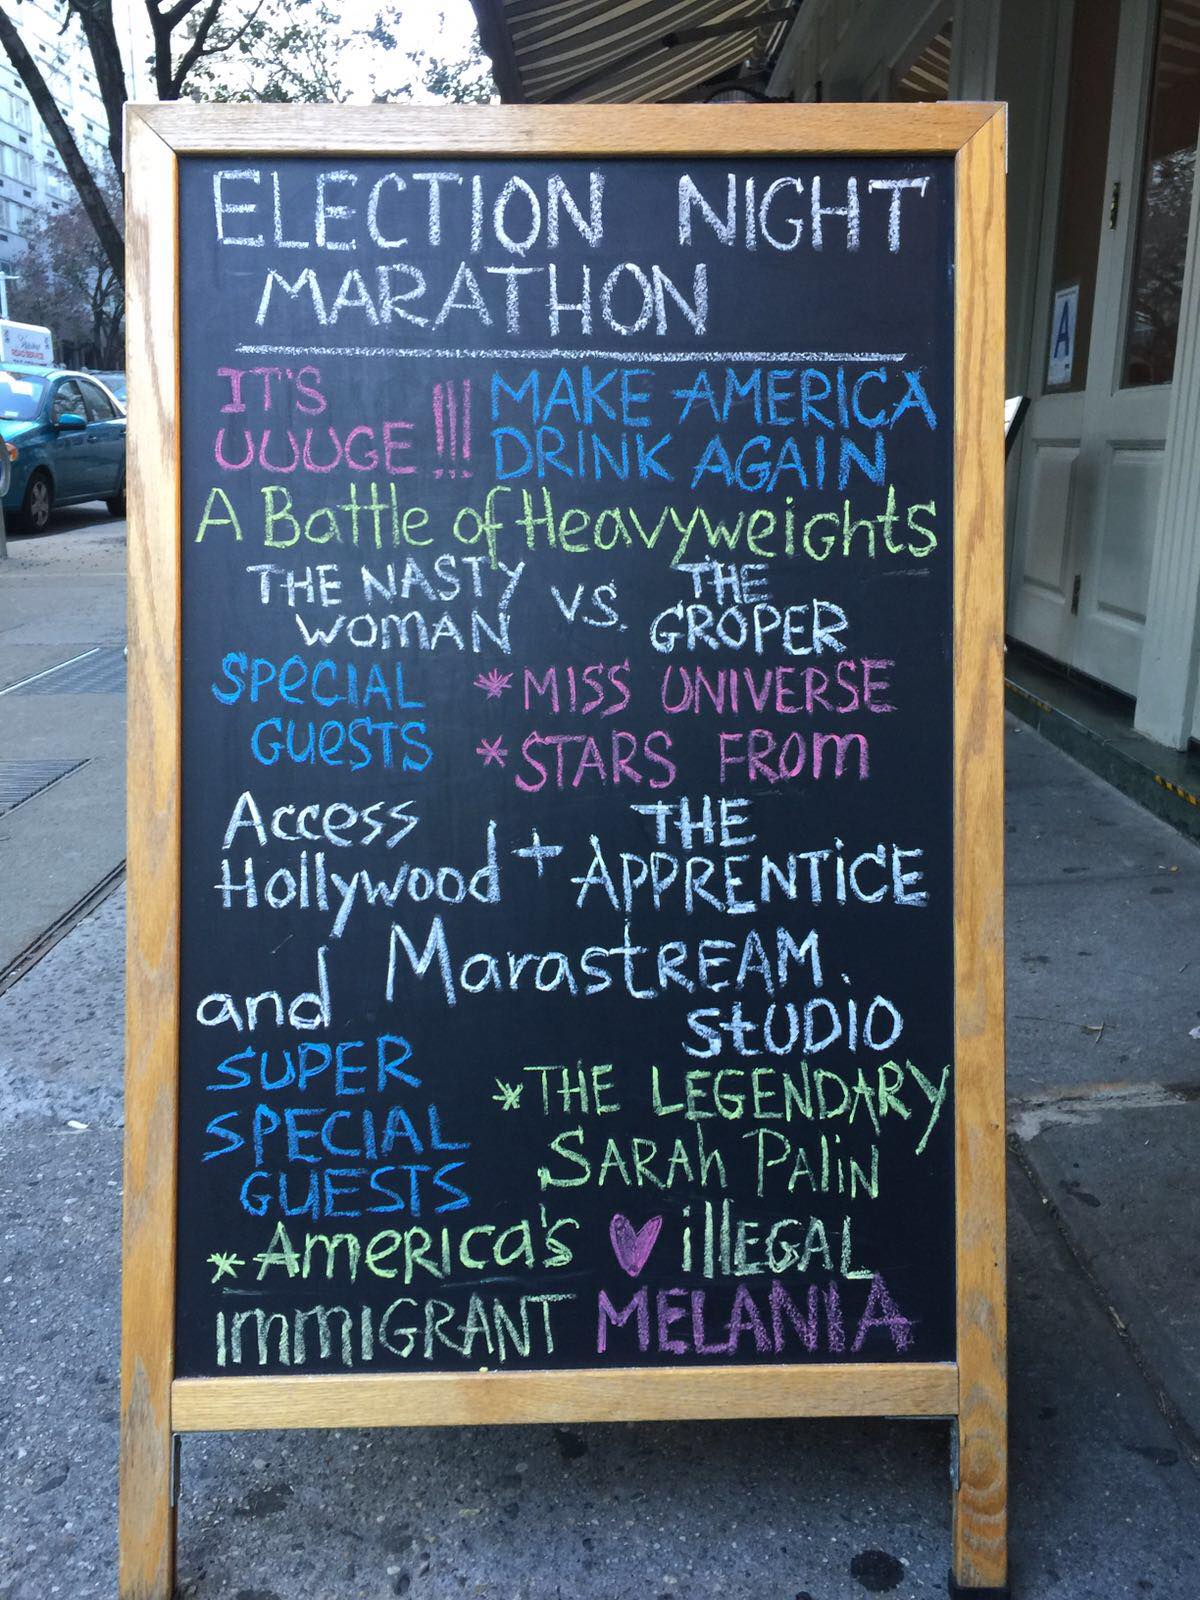 ELECTION NIGHT
MARATHON
IT'S
UUUGE!!!
MAKE AMERICA
DRINK AGAIN
A Battle of Heavyweights
THE NASTY
WOMAN
VS.
THE
GROPER
SPECIAL
GUESTS
*MISS UNIVERSE
*STARS FROM
Access
Hollywood
+
THE
APPRENTICE
and
MarastREAM.
StUDiO
SUPER
SPECIAL
GUESTS
*THE LEGENDARY
SARAh PAliN
*AmERICa's ♥ illEGAL
immIGRANT MELANIA
A
ROAD SERVICE